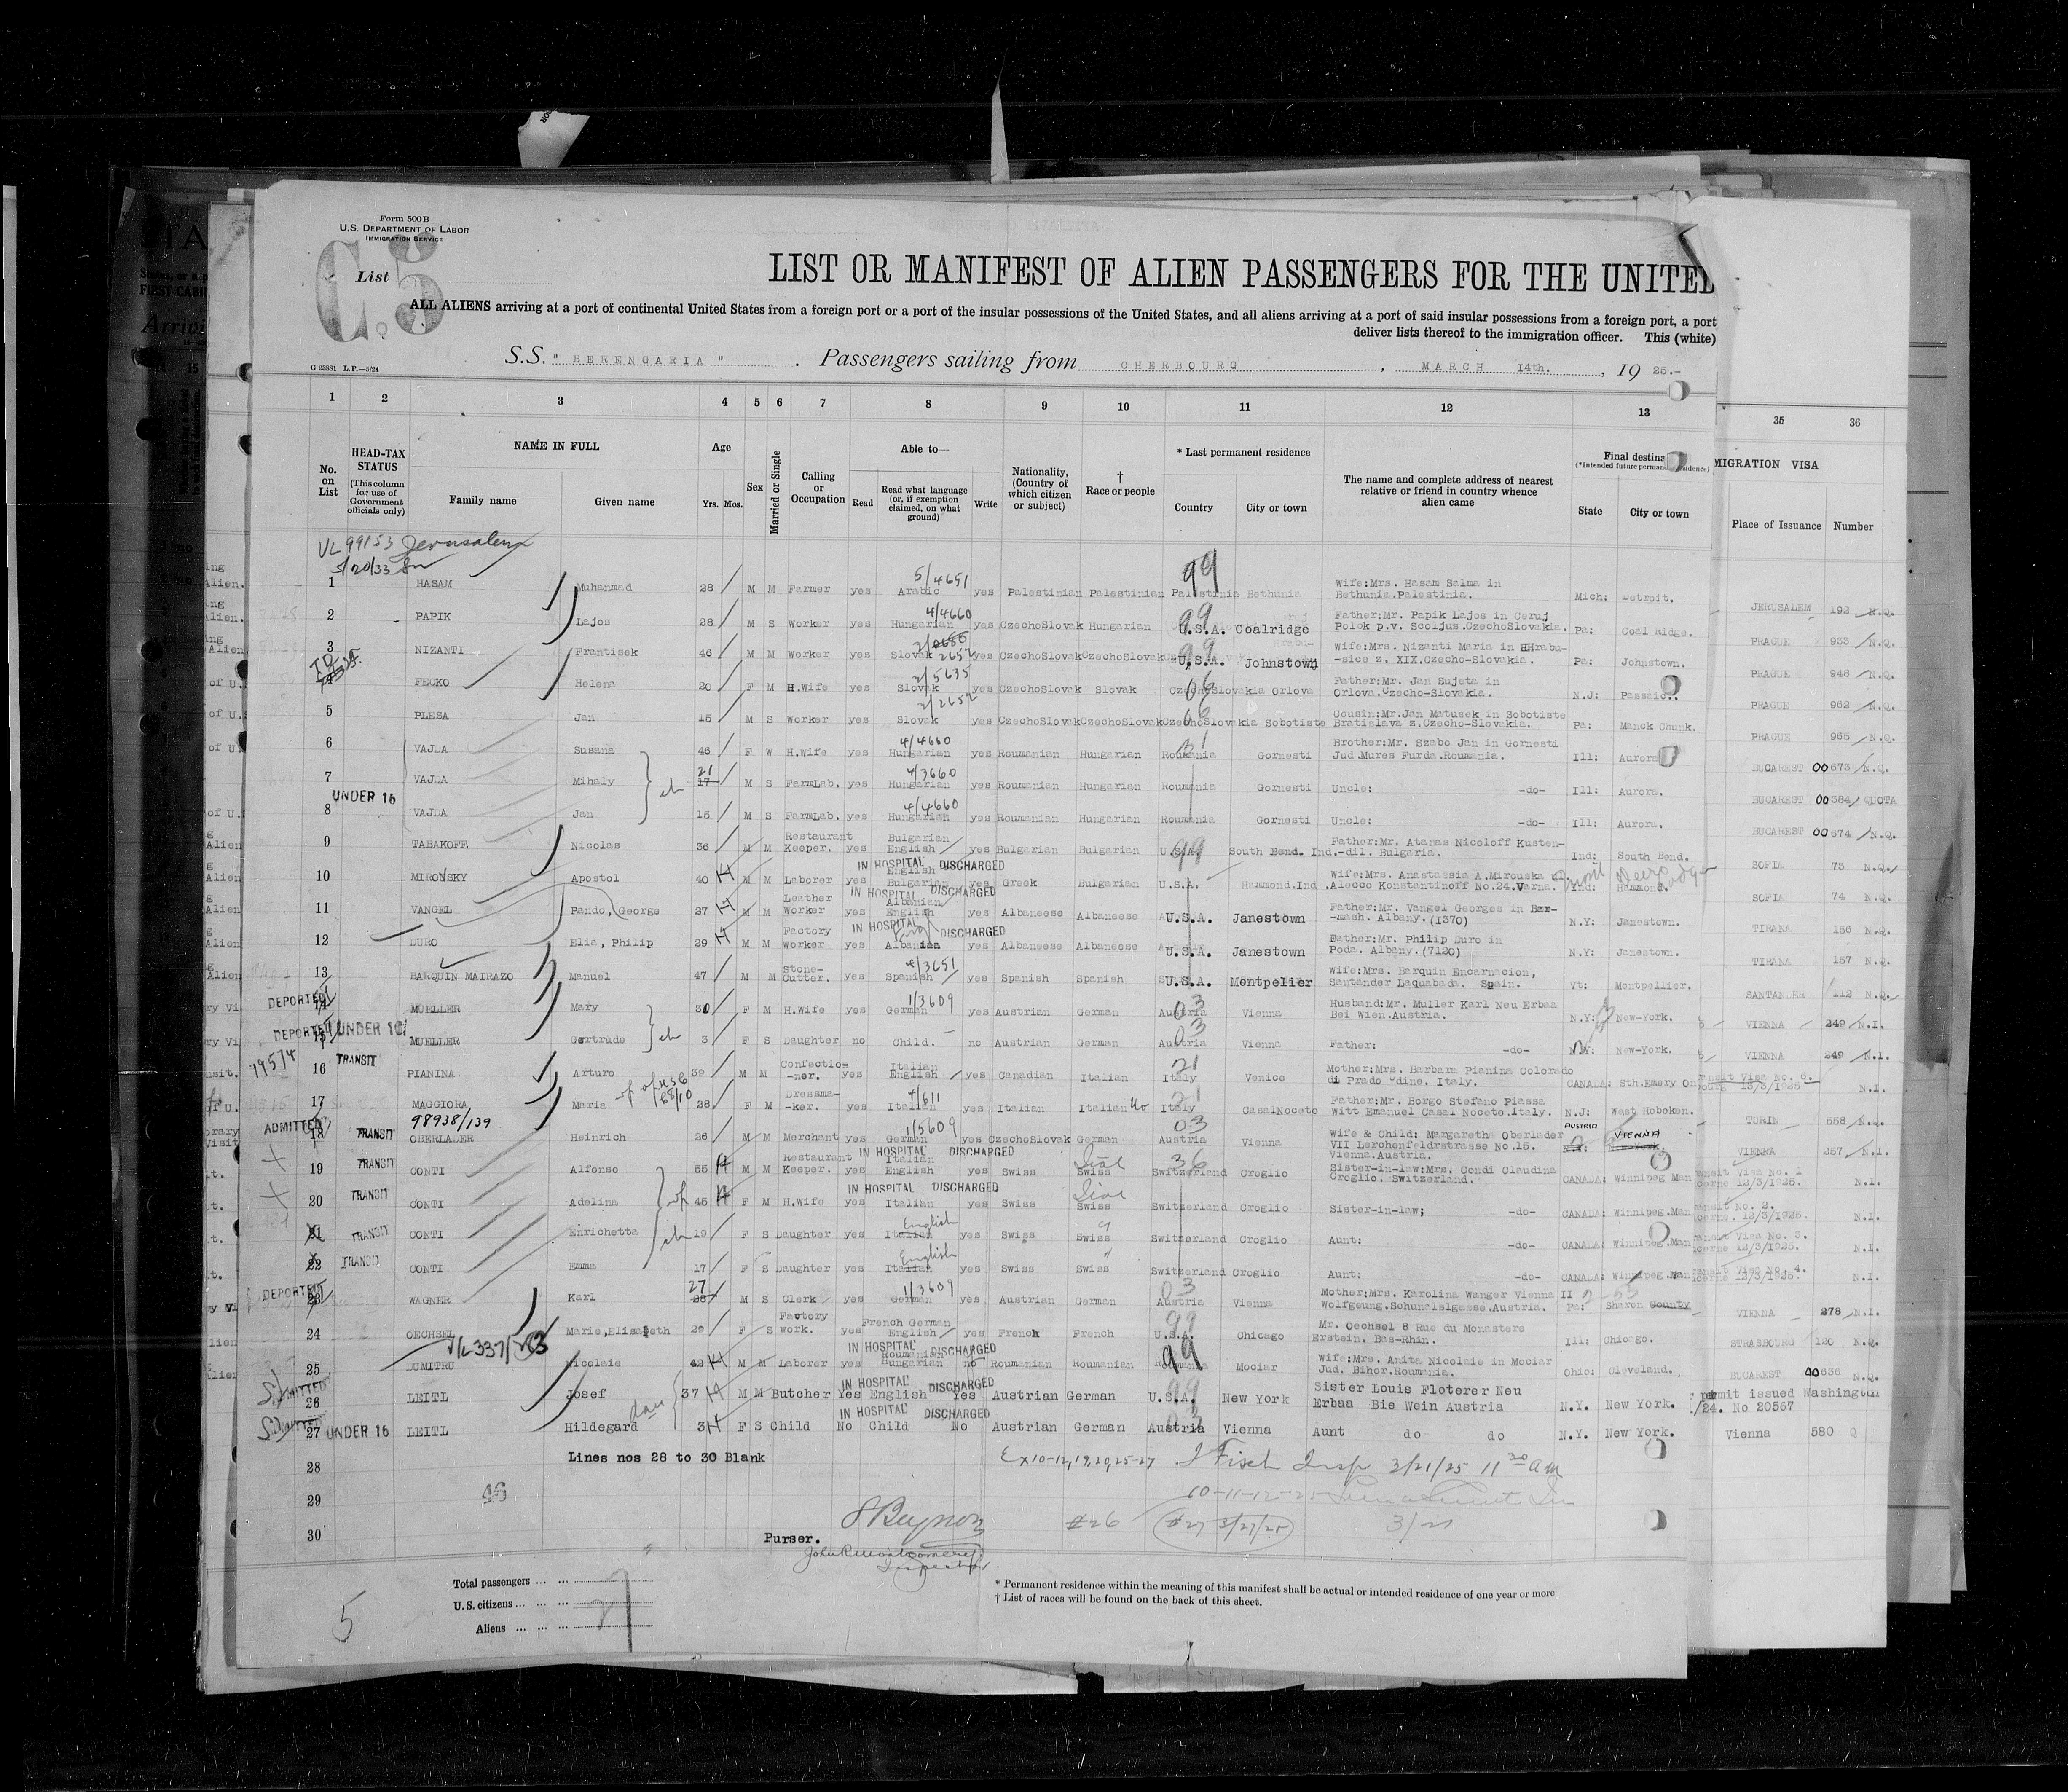 Form 500 B
U.S. DEPARTMENT OF LABOR
IMMIGRATION SERVICE
List
C. 5
LIST OR MANIFEST OF ALIEN PASSENGERS FOR THE UNITED
ALL ALIENS arriving at a port of continental United States from a foreign port or a port of the insular possessions of the United States, and all aliens arriving at a port of said insular possessions from a foreign port, a port
deliver lists thereof to the immigration officer. This (white)
S.S. " BERENGARIA " . Passengers sailing from CHERBOURG , MARCH 14th. , 19 25.-
G 23881 L.P.—5/24
1 2 3 4 5 6 7 8 9 10 11 12 13 35 36
No. on List
HEAD-TAX STATUS (This column for use of Government officials only)
NAME IN FULL
Family name Given name
Age
Yrs. Mos.
Sex
Married or Single
Calling or Occupation
Able to—
Read Read what language (or, if exemption claimed, on what ground) Write
Nationality, (Country of which citizen or subject)
† Race or people
* Last permanent residence
Country City or town
The name and complete address of nearest relative or friend in country whence alien came
Final destina
(*Intended future perman
State City or town
MIGRATION VISA
Place of Issuance Number
VL 99153 Jerusalem
5/20/33
1 HASAM Muhammad 28 M M Farmer yes Arabic 5/4651 yes Palestinian Palestinian Palestinia Bethunia 99 Wife:Mrs. Hasam Salma in Bethunia.Palestinia. Mich: Detroit. JERUSALEM 192 N.Q.
2 PAPIK Lajos 28 M S Worker yes Hungarian 4/4660 yes CzechoSlovak Hungarian U.S.A. Coalridge 99 Father:Mr. Papik Lajos in Ceruj Polok p.v. Scoljus.CzechoSlovakia. Pa: Coal Ridge. PRAGUE 933 N.Q.
3 NIZANTI Frantisek 46 M M Worker yes Slovak 2652 yes CzechoSlovak CzechoSlovak U.S.A. Johnstown 99 Wife:Mrs. Nizanti Maria in Hrabu- -sice z. XIX.Czecho-Slovakia. Pa: Johnstown. PRAGUE 948 N.Q.
4 FECKO Helena 20 F M H.Wife yes Slovak 2/5635 yes CzechoSlovak Slovak CzechoSlovakia Orlova Father:Mr. Jan Sujeta in Orlova.Czecho-Slovakia. N.J: Passaic. PRAGUE 962 N.Q.
5 PLESA Jan 15 M S Worker yes Slovak 2/2652 yes CzechoSlovak CzechoSlovak CzechoSlovakia Sobotiste Cousin:Mr.Jan Matusek in Sobotiste Bratislava z.Czecho-Slovakia. Pa: Manck Chunk. PRAGUE 965 N.Q.
6 VAJDA Susana 46 F W H.Wife yes Hungarian 4/4660 yes Roumanian Hungarian Roumania Gornesti 31 Brother:Mr. Szabo Jan in Gornesti Jud.Mures Furda.Roumania. Ill: Aurora BUCAREST 00673 N.Q.
7 VAJDA Mihaly ch 21 17 M S FarmLab. yes Hungarian 4/3660 yes Roumanian Hungarian Roumania Gornesti Uncle: -do- Ill: Aurora. BUCAREST 00384 QUOTA
UNDER 16
8 VAJDA Jan 15 M S FarmLab. yes Hungarian 4/4660 yes Roumanian Hungarian Roumania Gornesti Uncle: -do- Ill: Aurora. BUCAREST 00674 N.Q.
9 TABAKOFF Nicolas 36 M M Restaurant Keeper. yes Bulgarian English yes Bulgarian Bulgarian U.S.A. South Bend. Ind. 99 Father:Mr. Atanas Nicoloff Kusten- -dil. Bulgaria. Ind: South Bend. SOFIA 73 N.Q.
IN HOSPITAL DISCHARGED
10 MIROVSKY Apostol 40 H M M Laborer yes English Bulgarian yes Greek Bulgarian U.S.A. Hammond.Ind. Wife:Mrs. Anastassia A.Mirouska ul. Alecco Konstantinoff No.24.Varna. Ind: Hammond. SOFIA 74 N.Q.
IN HOSPITAL DISCHARGED
11 VANGEL Pando, George 27 H M M Leather Worker yes Albanian English yes Albaneese Albaneese U.S.A. Janestown Father:Mr. Vangel Georges in Bar- -mash. Albany. (1370) N.Y: Janestown. TIRANA 156 N.Q.
IN HOSPITAL DISCHARGED
12 DURO Elia, Philip 29 H M M Factory Worker yes Albanian yes Albaneese Albaneese U.S.A. Janestown Father:Mr. Philip Duro in Poda. Albany. (7120) N.Y: Janestown. TIRANA 157 N.Q.
13 BARQUIN MAIRAZO Manuel 47 M M Stone-Cutter. yes Spanish 4/3651 yes Spanish Spanish U.S.A. Montpelier Wife:Mrs. Barquin Encarnacion, Santander Laquabada. Spain. Vt: Montpellier. SANTANDER 112 N.Q.
DEPORTED
14 MUELLER Mary 30 F M H.Wife yes German 1/3609 yes Austrian German Austria Vienna 03 Husband:Mr. Muller Karl Neu Erbaa Bei Wien.Austria. N.Y: New-York. VIENNA 249 N.I.
DEPORTED UNDER 16
15 MUELLER Gertrude ch 3 F S Daughter no Child. no Austrian German Austria Vienna 03 Father: -do- N.Y: New-York. VIENNA 249 N.I.
19574
16 TRANSIT PIANINA Arturo 39 M M Confectio-ner. yes Italian English yes Canadian Italian Italy Venice 21 Mother:Mrs. Barbara Pianina Colorado di Prado Udine. Italy. CANADA: Sth.Emery On Transit Visa No. 6. 13/3/1925. N.I.
17 MAGGIORA Maria 28 F M Dressma-ker. yes Italian 4/611 yes Italian Italian No Italy CasalNoceto 21 Father:Mr. Borgo Stefano Piassa Witt Emanuel Casal Noceto.Italy. N.J: West Hoboken. TORIN 558 N.Q.
98938/139
ADMITTED
18 TRANSIT OBERLADER Heinrich 26 M M Merchant yes German 1/5609 yes CzechoSlovak German Austria Vienna 03 Wife & Child: Margarethe Oberlader VII Lerchenfeldrstrasse No.15. Vienna.Austria. AUSTRIA VIENNA VIENNA 357 N.I.
IN HOSPITAL DISCHARGED
19 TRANSIT CONTI Alfonso 55 H M M Restaurant Keeper. yes Italian English yes Swiss Swiss Switzerland Croglio 36 Sister-in-law:Mrs. Condi Claudina Croglio. Switzerland. CANADA: Winnipeg Man Transit Visa No. 1 12/3/1925. N.I.
IN HOSPITAL DISCHARGED
20 TRANSIT CONTI Adelina wf 45 H F M H.Wife yes Italian yes Swiss Swiss Switzerland Croglio Sister-in-law; -do- CANADA: Winnipeg.Man No. 2. 12/3/1925. N.I.
21 TRANSIT CONTI Enrichetta ch 19 F S Daughter yes English Italian yes Swiss Swiss Switzerland Croglio Aunt: -do- CANADA: Winnipeg.Man Visa No. 3. 12/3/1925. N.I.
22 TRANSIT CONTI Emma 17 F S Daughter yes English Italian yes Swiss Swiss Switzerland Croglio Aunt: -do- CANADA: Winnipeg.Man Visa No. 4. 12/3/1925. N.I.
DEPORTED
23 WAGNER Karl 27 M S Clerk yes German 1/3609 yes Austrian German Austria Vienna 03 Mother:Mrs. Karolina Wanger Vienna II Wolfgeung.Schunaielgasse.Austria. Pa: Sharon County VIENNA 278 N.I.
24 OECHSEL Marie,Elisabeth 29 F S Factory Work. yes French German English yes French French U.S.A. Chicago 99 Mr. Oechsel 8 Rue du Monastere Erstein. Bas-Rhin. Ill: Chicago. STRASBOURG 120 N.Q.
IN HOSPITAL DISCHARGED
25 DUMITRU Nicolaie 42 H M M Laborer yes Roumanian Hungarian no Roumanian Roumanian Roumania Mociar 99 Wife:Mrs. Anita Nicolaie in Mociar Jud. Bihor.Roumania. Ohio: Cleveland. BUCAREST 00636 N.Q.
IN HOSPITAL DISCHARGED
26 LEITL Josef 37 H M M Butcher Yes English Yes Austrian German U.S.A. New York 99 Sister Louis Floterer Neu Erbaa Bie Wein Austria N.Y. New York. permit issued Washington /24. No 20567
IN HOSPITAL DISCHARGED
27 UNDER 16 LEITL Hildegard dau 3 H F S Child No Child No Austrian German Austria Vienna 03 Aunt do do N.Y. New York. Vienna 580 Q
Lines nos 28 to 30 Blank
Ex10-12,19,20,25-27 J Fisch Insp 3/21/25 11 20 am
28
29
30
46
Purser.
#26 #27 3/27/25 3/21
John R Montgomery
Inspector
Total passengers ... ...
U.S. citizens ... ... ...
Aliens ... ... ... 27
5
* Permanent residence within the meaning of this manifest shall be actual or intended residence of one year or more
† List of races will be found on the back of this sheet.